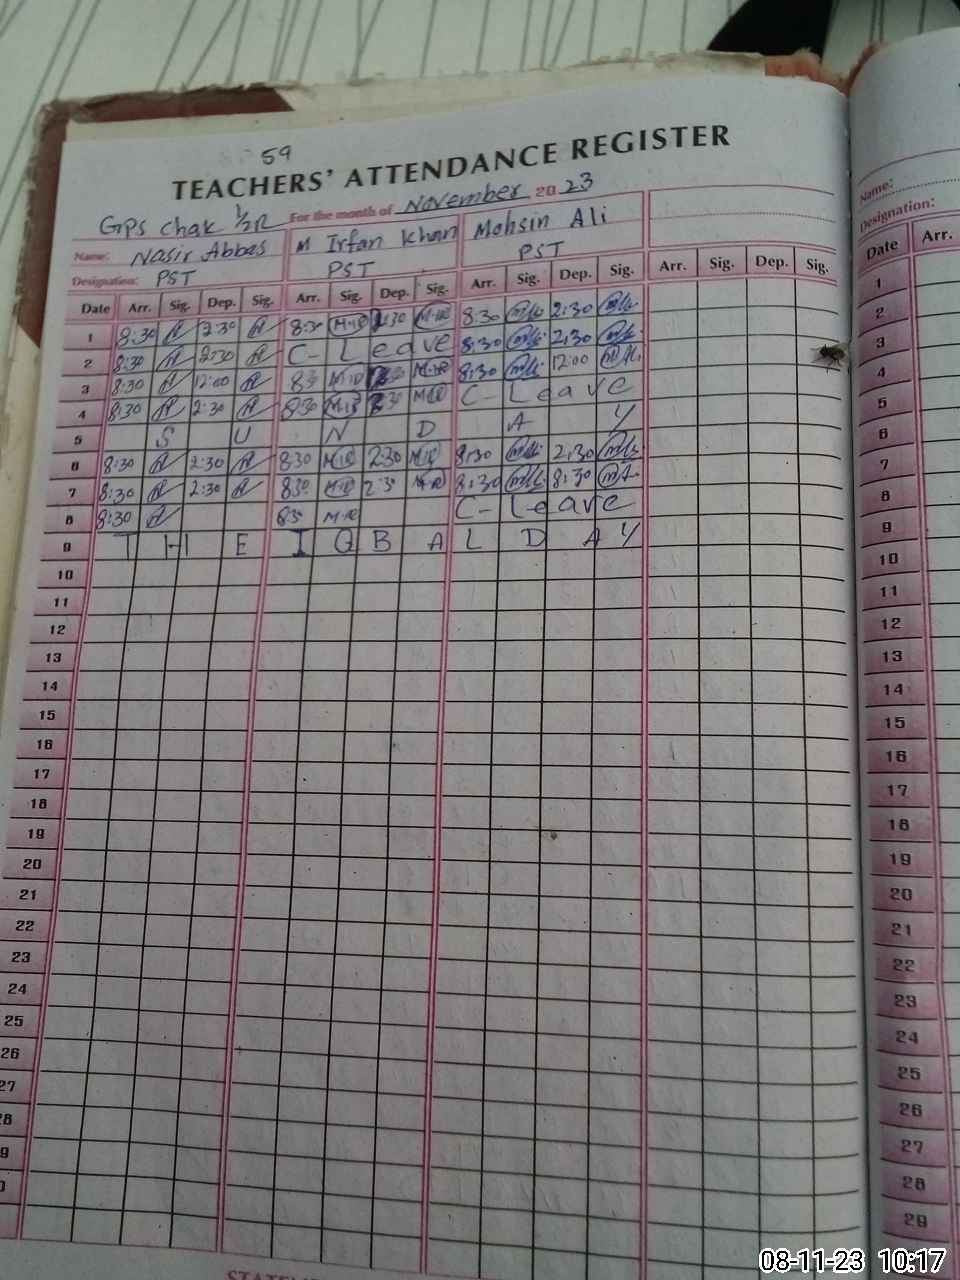 59
TEACHERS' ATTENDANCE REGISTER
GPS Chak 1/2R For the month of November 20 23
Name: Nasir Abbas M Irfan Khan Mohsin Ali
Designation: PST PST PST
Date Arr. Sig. Dep. Sig. Arr. Sig. Dep. Sig. Arr. Sig. Dep. Sig. Arr. Sig. Dep. Sig.
1 8:30 2:30 8:30 2:30 8:30 2:30
2 8:30 2:30 C- Leave 8:30 2:30
3 8:30 12:00 8:30 12:00
4 8:30 2:30 8:30 2:30 C- Leave
5 S U N D A Y
6 8:30 2:30 8:30 2:30 8:30 2:30
7 8:30 2:30 8:30 2:30 8:30 8:30
8 8:30 8:30 C- Leave
9 T H E I Q B A L D A Y
10
11
12
13
14
15
16
17
18
19
20
21
22
23
24
25
26
27
28
Name:
Designation:
Date Arr.
1
2
3
4
5
6
7
8
9
10
11
12
13
14
15
16
17
18
19
20
21
22
23
24
25
26
27
28
29
08-11-23 10:17